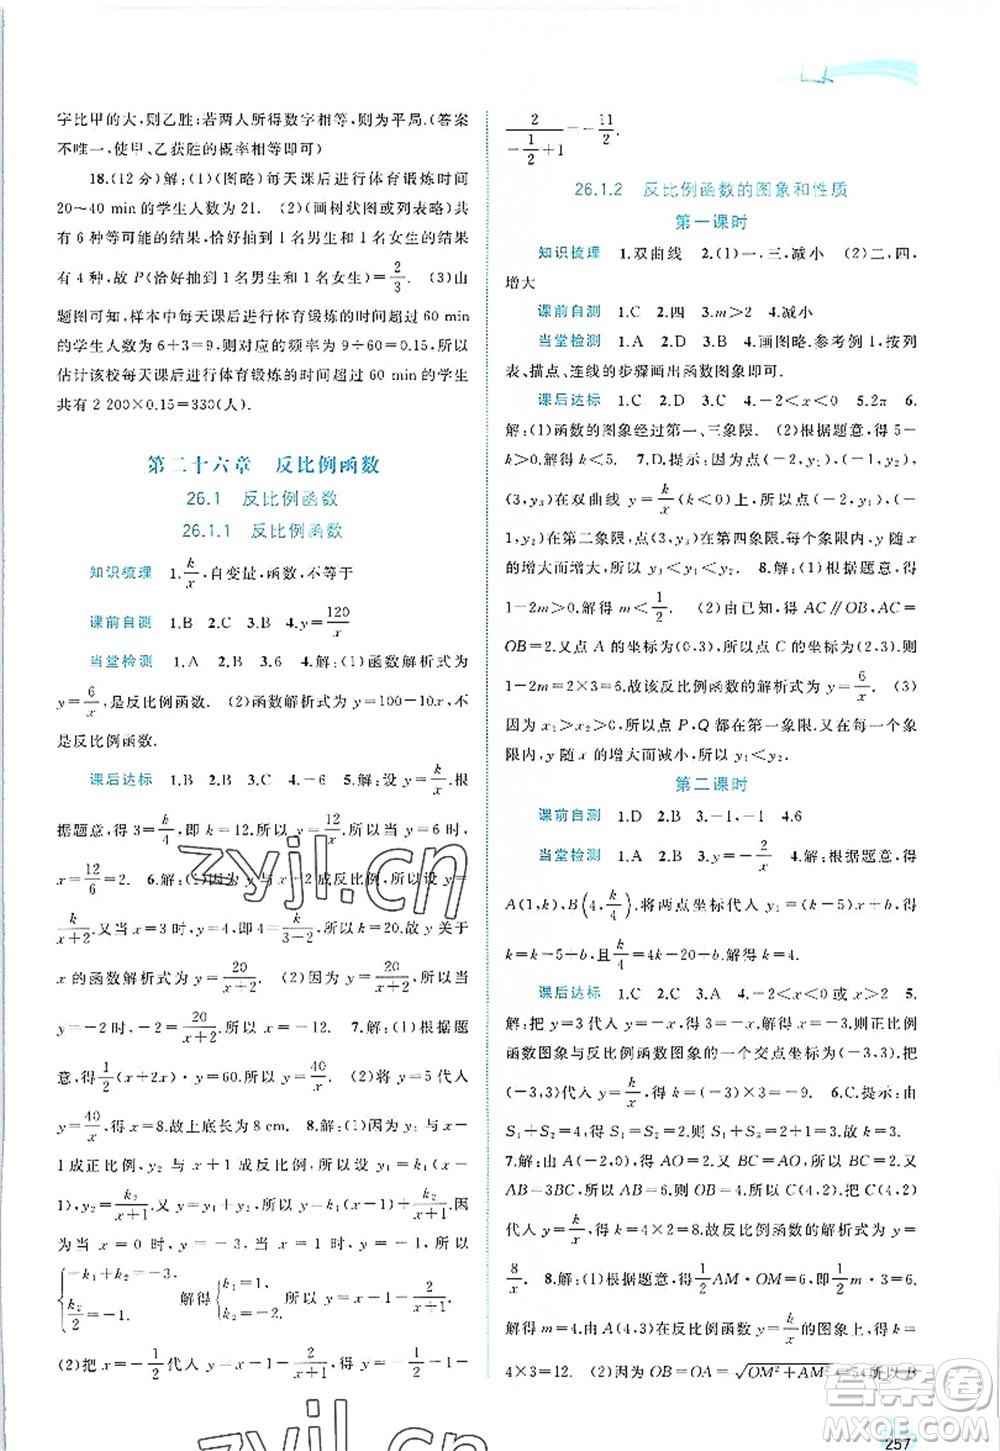 字比甲的大,则乙胜;若两人所得数字相等,则为平局.(答案
不唯一,使甲、乙获胜的概率相等即可)
18.(12分)解:(1)(图略)每天课后进行体育锻炼时间
20～40 min的学生人数为21. (2)(画树状图或列表略)共
有6种等可能的结果,恰好抽到1名男生和1名女生的结果
有4种,故P(恰好抽到1名男生和1名女生)=2/3. (3)由
题图可知,样本中每天课后进行体育锻炼的时间超过60 min
的学生人数为6+3=9,则对应的频率为9÷60=0.15,所以
估计该校每天课后进行体育锻炼的时间超过60 min的学生
共有2 200×0.15=330(人).
第二十六章 反比例函数
26.1 反比例函数
26.1.1 反比例函数
知识梳理 1.k/x,自变量,函数,不等于
课前自测 1.B 2.C 3.C 4.y=120/x
当堂检测 1.A 2.B 3.6 4.解:(1)函数解析式为
y=6/x,是反比例函数. (2)函数解析式为y=100-10x,不
是反比例函数.
课后达标 1.B 2.B 3.C 4.-6 5.解:设y=k/x,根
据题意,得3=k/4,即k=12,所以y=12/x,所以当y=6时,
x=12/6=2. 6.解:(1)因为y与x+2成反比例,所以设y=
k/(x+2).又当x=3时,y=4,即4=k/(3+2),所以k=20.故y关于
x的函数解析式为y=20/(x+2). (2)因为y=20/(x+2),所以当y=
-2时,-2=20/(x+2).所以x=-12. 7.解:(1)根据题
意,得1/2(x+2x)·y=60,所以y=40/x. (2)将y=5代入
y=40/x,得x=8.故上底长为8 cm. 8.解:(1)因为y₁与x-
1成正比例,y₂与x+1成反比例,所以设y₁=k₁(x-
1),y₂=k₂/(x+1).又因为y=y₁+y₂,所以y=k₁(x-1)+k₂/(x+1).因
为当x=0时,y=-3,当x=1时,y=-1,所以
{-k₁+k₂=-3, k₂/2=-1. 解得{k₁=1, k₂=-2. 所以y=x-1-2/(x+1).
(2)把x=-1/2代入y=x-1-2/(x+1),得y=-1/2-1-
2/(-1/2+1)=-11/2.
26.1.2 反比例函数的图象和性质
第一课时
知识梳理 1.双曲线 2.(1)一,三,减小 (2)二,四,
增大
课前自测 1.C 2.四 3.m>2 4.减小
当堂检测 1.A 2.D 3.< 4.画图略.参考例1,按列
表、描点、连线的步骤画出函数图象即可.
课后达标 1.C 2.D 3.C 4.-2<x<0 5.2π 6.
解:(1)函数的图象经过第一、三象限. (2)根据题意,得5-
k>0,解得k<5. 7.D,提示:因为点(-2,y₁),(-1,y₂),
(3,y₃)在双曲线y=k/x(k<0)上,所以点(-2,y₁),(-1,y₂)
在第二象限,点(3,y₃)在第四象限,每个象限内,y随x的
增大而增大,所以y₃<y₁<y₂. 8.解:(1)根据题意,得
1-2m>0,解得m<1/2. (2)因为AC∥OB,AC=
OB=2.又点A的坐标为(0,3),所以点C的坐标为(2,3),
1-2m=2×3=6,故该反比例函数的解析式为y=6/x. (3)
因为x₁>x₂>0,所以点P,Q都在第一象限.又在第一象
限内,y随x的增大而减小,所以y₁<y₂.
第二课时
课前自测 1.D 2.B 3.-1,-1 4.6
当堂检测 1.A 2.B 3.y=-2/x 4.解:根据题意,得
A(1,k),B(4,k/4),将两点坐标代入y₁=(k-5)x+b,得
k=k-5+b,k/4=4(k-5)+b,解得b=5,k=4.
课后达标 1.C 2.C 3.A 4.-2<x<0或x>2 5.
解:把y=3代入y=-x,得x=-3,则正比例
函数图象与反比例函数图象的一个交点坐标为(-3,3).把
(-3,3)代入y=k/x,得k=(-3)×3=-9. 6.C,提示:由
S₁+S₂=3,得1/2k+1/2×1=3,所以k=5.
7.解:由A(-2,0),得AO=2.因为D为AC中点,又
AB=3BC,所以BC=2,OB=4,所以C(4,2).把C(4,2)
代入y=k/x,得k=4×2=8.故反比例函数的解析式为y=
8/x. 8.解:(1)根据题意,得1/2AM·OM=6,即1/2m·3=6.
解得m=4.又点A(4,3)在反比例函数y=k/x的图象上,得k=
4×3=12. (2)因为OB=OA=√(OM²+AM²)=5,所以B
257
zyjl.cn
zyjl.cn
答案圈
MXQE.COM